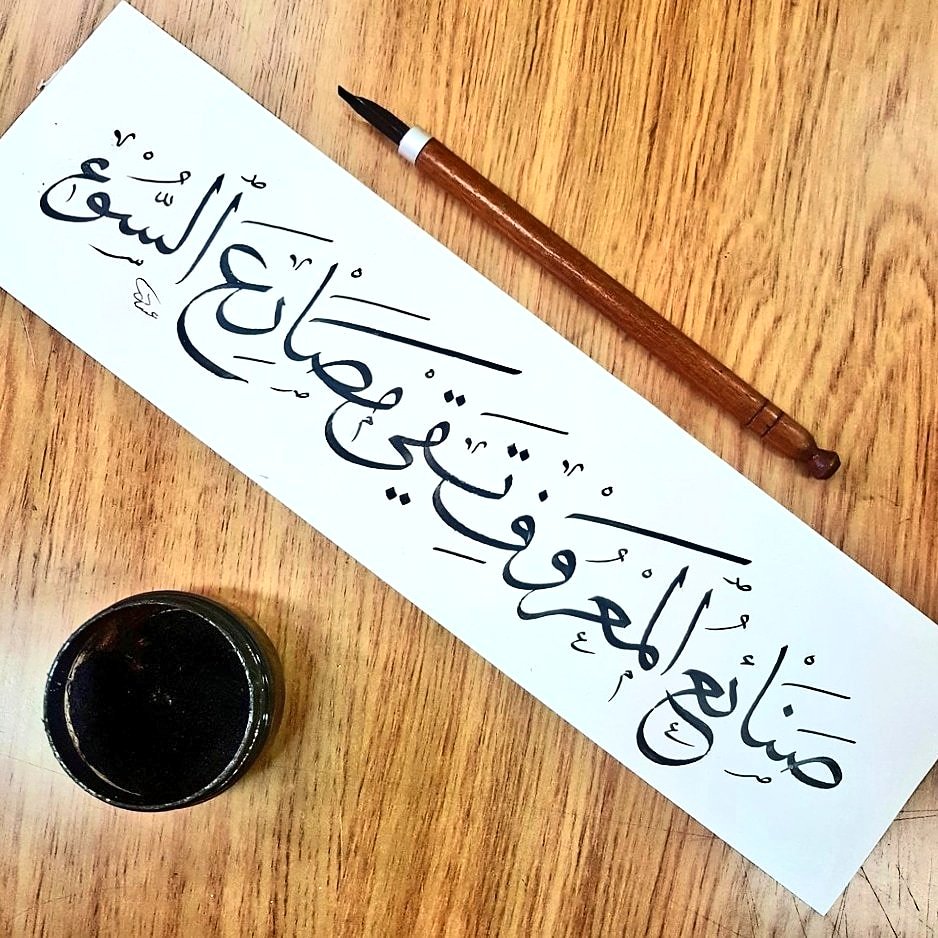 صَنَائِعُ الْمَعْرُوفِ تَقِي مَصَارِعَ السُّوءِ